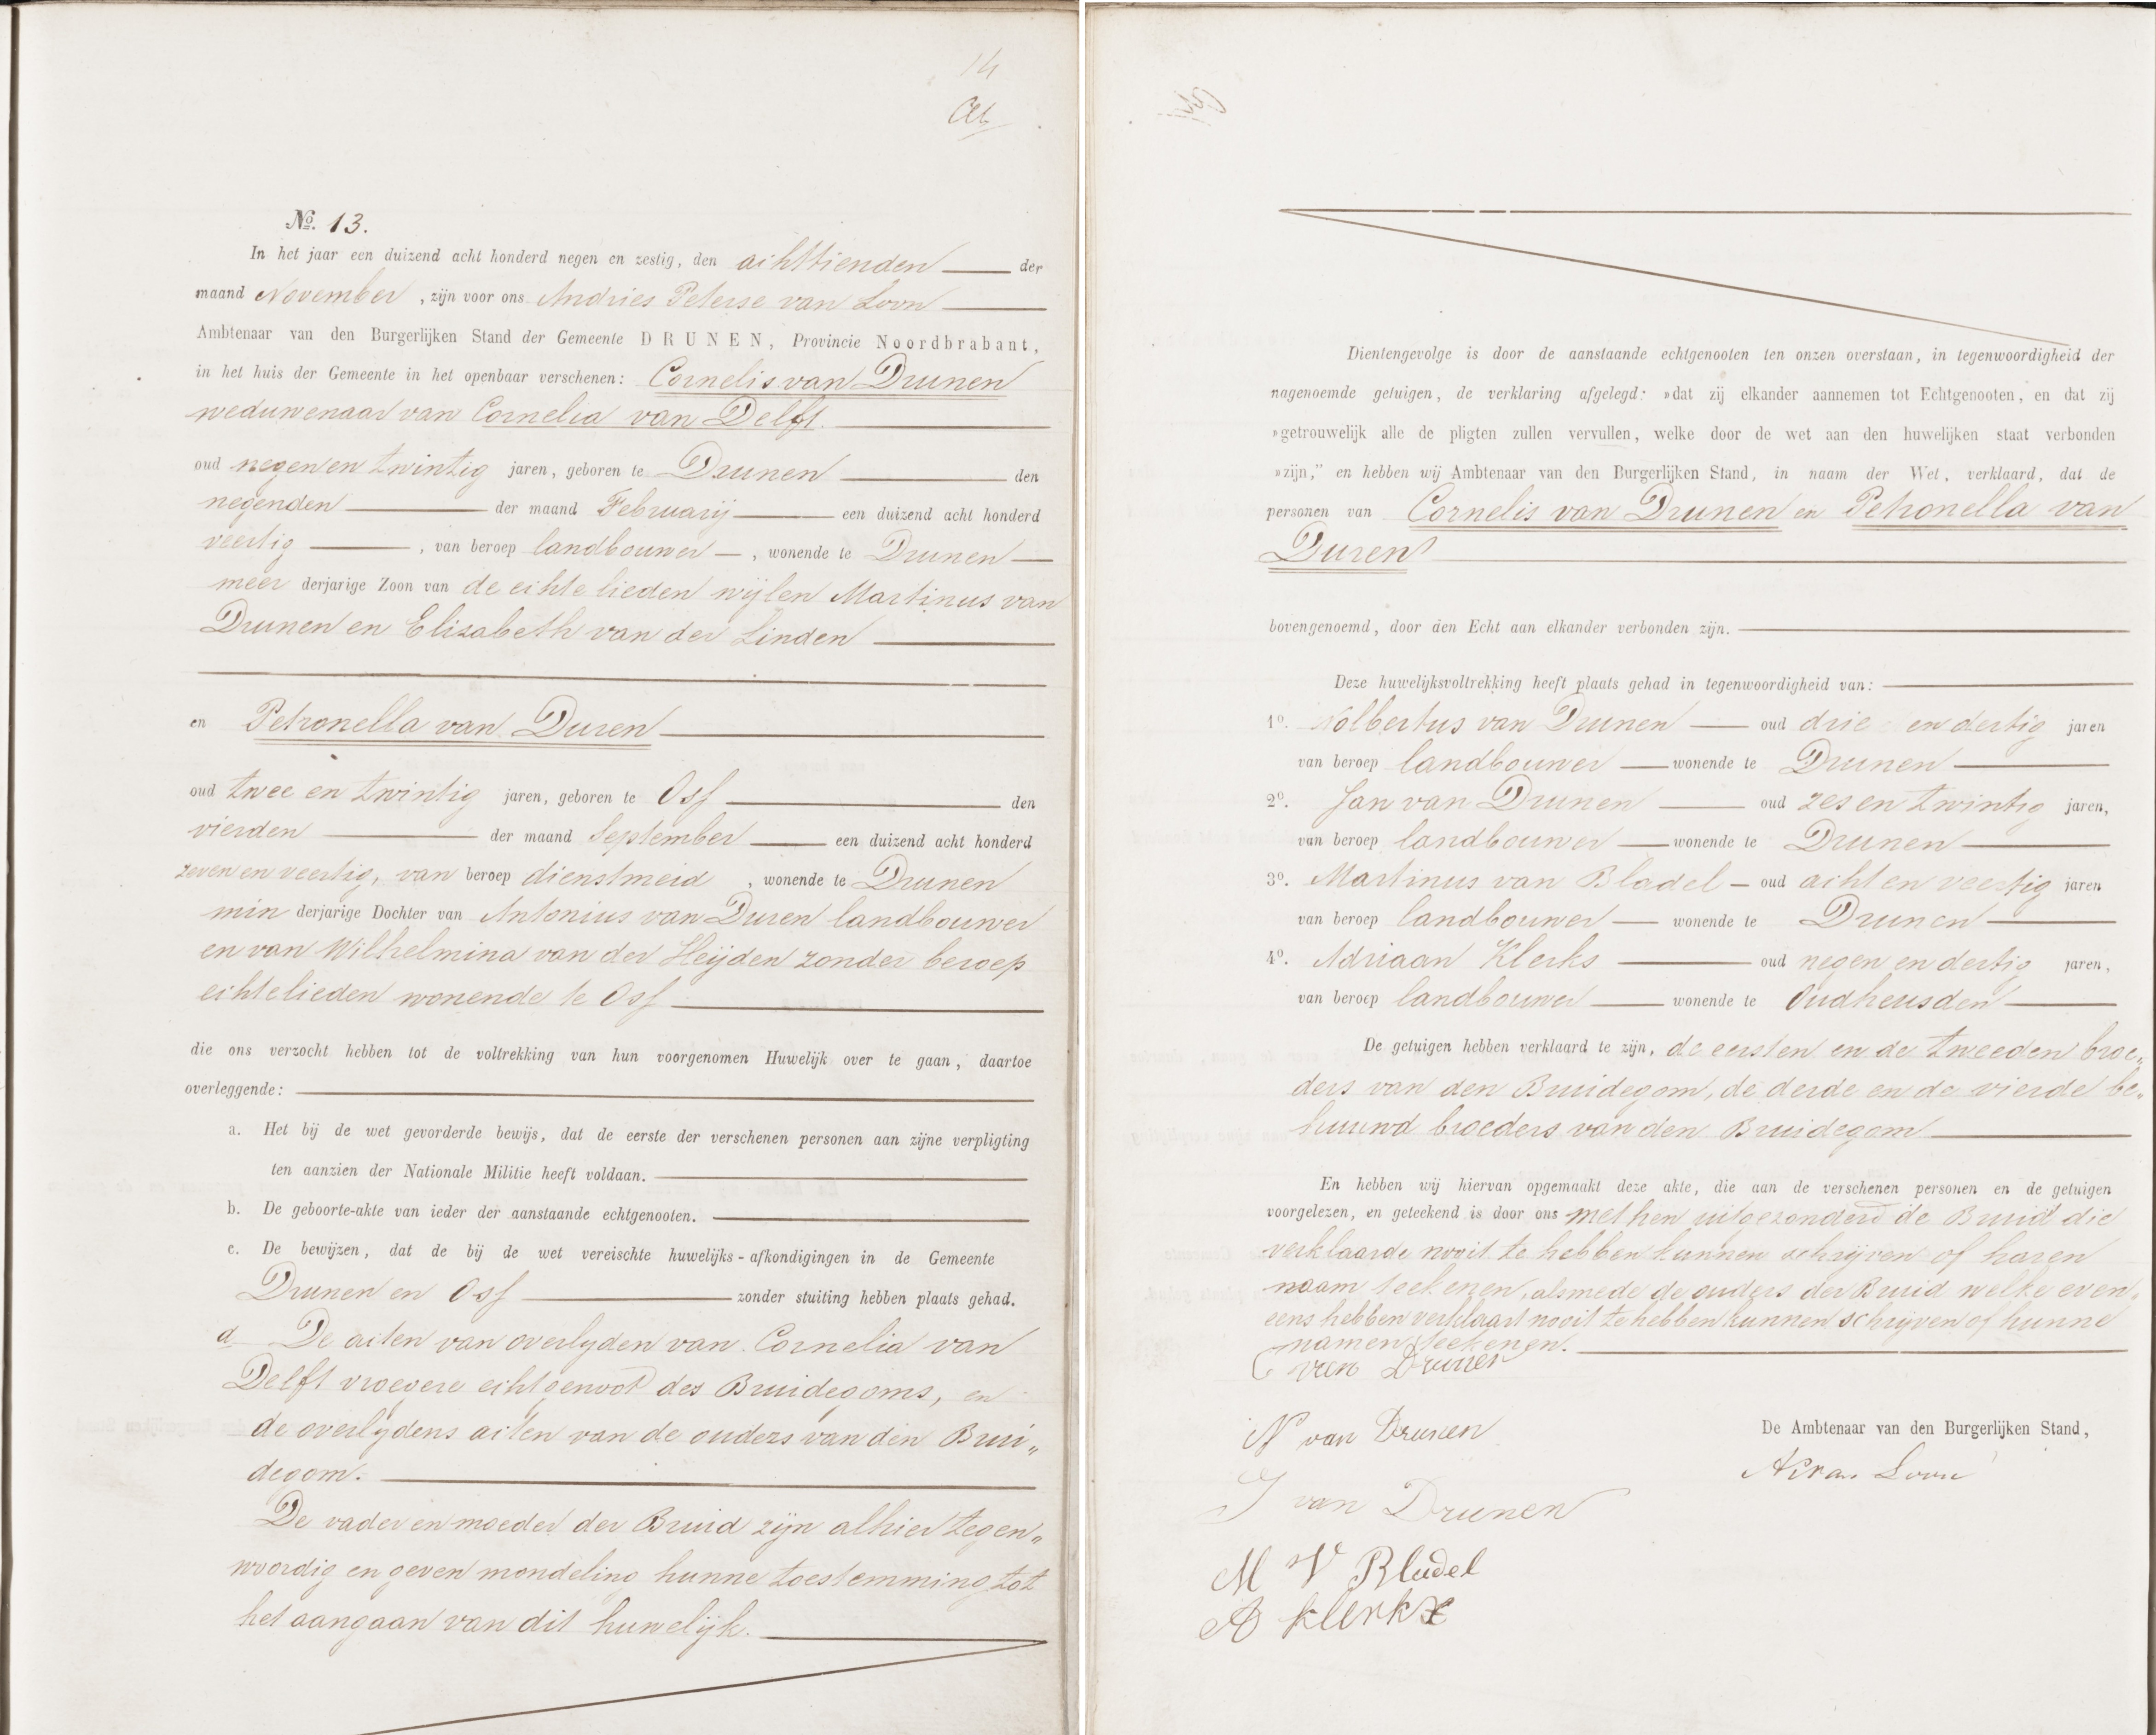 14
No. 13.
In het jaar een duizend acht honderd negen en zestig, den achttienden der
maand November, zijn voor ons Andries Peterse van Loon
Ambtenaar van den Burgerlijken Stand der Gemeente DRUNEN, Provincie Noordbrabant,
in het huis der Gemeente in het openbaar verschenen: Cornelis van Drunen
weduwenaar van Cornelia van Delft.
oud negen en twintig jaren, geboren te Drunen den
negenden der maand Februarij een duizend acht honderd
veertig, van beroep landbouwer, wonende te Drunen
meer derjarige Zoon van de echte lieden wijlen Martinus van
Drunen en Elisabeth van der Linden
en Petronella van Duren
oud twee en twintig jaren, geboren te Oss den
vierden der maand September een duizend acht honderd
zeven en veertig, van beroep dienstmeid, wonende te Drunen
min derjarige Dochter van Antonius van Duren landbouwer
en van Wilhelmina van der Heijden zonder beroep
echtelieden wonende te Oss
die ons verzocht hebben tot de voltrekking van hun voorgenomen Huwelijk over te gaan, daartoe
overleggende:
a. Het bij de wet gevorderde bewijs, dat de eerste der verschenen personen aan zijne verpligting
ten aanzien der Nationale Militie heeft voldaan.
b. De geboorte-akte van ieder der aanstaande echtgenooten.
c. De bewijzen, dat de bij de wet vereischte huwelijks-afkondigingen in de Gemeente
Drunen en Oss zonder stuiting hebben plaats gehad.
d De acten van overlyden van Cornelia van
Delft vroegere echtgenoot des Bruidegoms, en
de overlydens acten van de ouders van den Brui„
degom.
De vader en moeder der Bruid zijn alhier tegen„
woordig en geven mondeling hunne toestemming tot
het aangaan van dit huwelijk.
Dientengevolge is door de aanstaande echtgenooten ten onzen overstaan, in tegenwoordigheid der
nagenoemde getuigen, de verklaring afgelegd: »dat zij elkander aannemen tot Echtgenooten, en dat zij
»getrouwelijk alle de pligten zullen vervullen, welke door de wet aan den huwelijken staat verbonden
»zijn,” en hebben wij Ambtenaar van den Burgerlijken Stand, in naam der Wet, verklaard, dat de
personen van Cornelis van Drunen en Petronella van
Duren
bovengenoemd, door den Echt aan elkander verbonden zijn.
Deze huwelijksvoltrekking heeft plaats gehad in tegenwoordigheid van:
1o. Nolbertus van Drunen oud drie en dertig jaren
van beroep landbouwer wonende te Drunen
2o. Jan van Drunen oud zes en twintig jaren,
van beroep landbouwer wonende te Drunen
3o. Martinus van Bladel oud acht en veertig jaren
van beroep landbouwer wonende te Drunen
4o. Adriaan Klerks oud negen en dertig jaren,
van beroep landbouwer wonende te Oudheusden
De getuigen hebben verklaard te zijn, de eersten en de tweeden broe„
ders van den Bruidegom, de derde en de vierde be„
huuwd broeders van den Bruidegom
En hebben wij hiervan opgemaakt deze akte, die aan de verschenen personen en de getuigen
voorgelezen, en geteekend is door ons met hen uitgezonderd de Bruid die
verklaarde nooit te hebben kunnen schrijven of haren
naam teekenen, alsmede de ouders der Bruid welke even„
eens hebben verklaart nooit te hebben kunnen schrijven of hunne
namen teekenen.
C van Drunen
N van Drunen
De Ambtenaar van den Burgerlijken Stand,
J van Drunen
M V Bladel
A klerkx